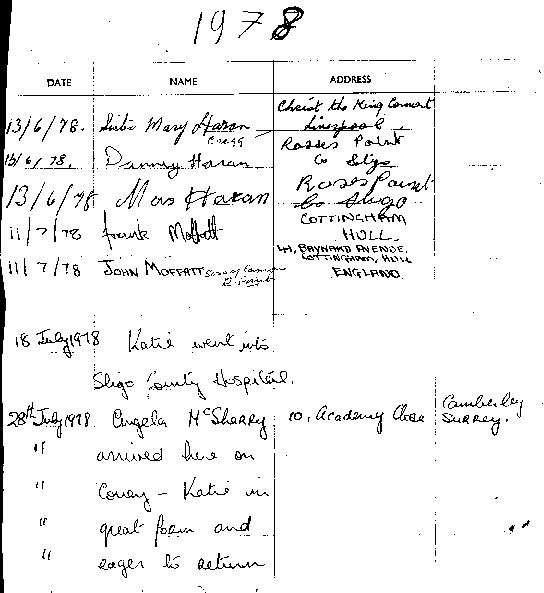 1978
DATE NAME ADDRESS
Christ the King Convent
13/6/78. Sister Mary Haran Liverpool.
Gregg Rosses Point
13/6/78. Danny Haran Co Sligo
13/6/78 Mrs Haran Rosses Point
Co Sligo
11/7/78 Frank Moffatt COTTINGHAM
HULL.
41, BAYNARD AVENUE,
11/7/78 JOHN MOFFATT COTTINGHAM, HULL
R. Point ENGLAND
18 July 1978 Katie went into
Sligo County Hospital.
28th July 1978. Angela McSharry 10, Academy Close Camberley
SURREY.
" arrived here on
" Coney – Katie in
" great form and
" eager to return